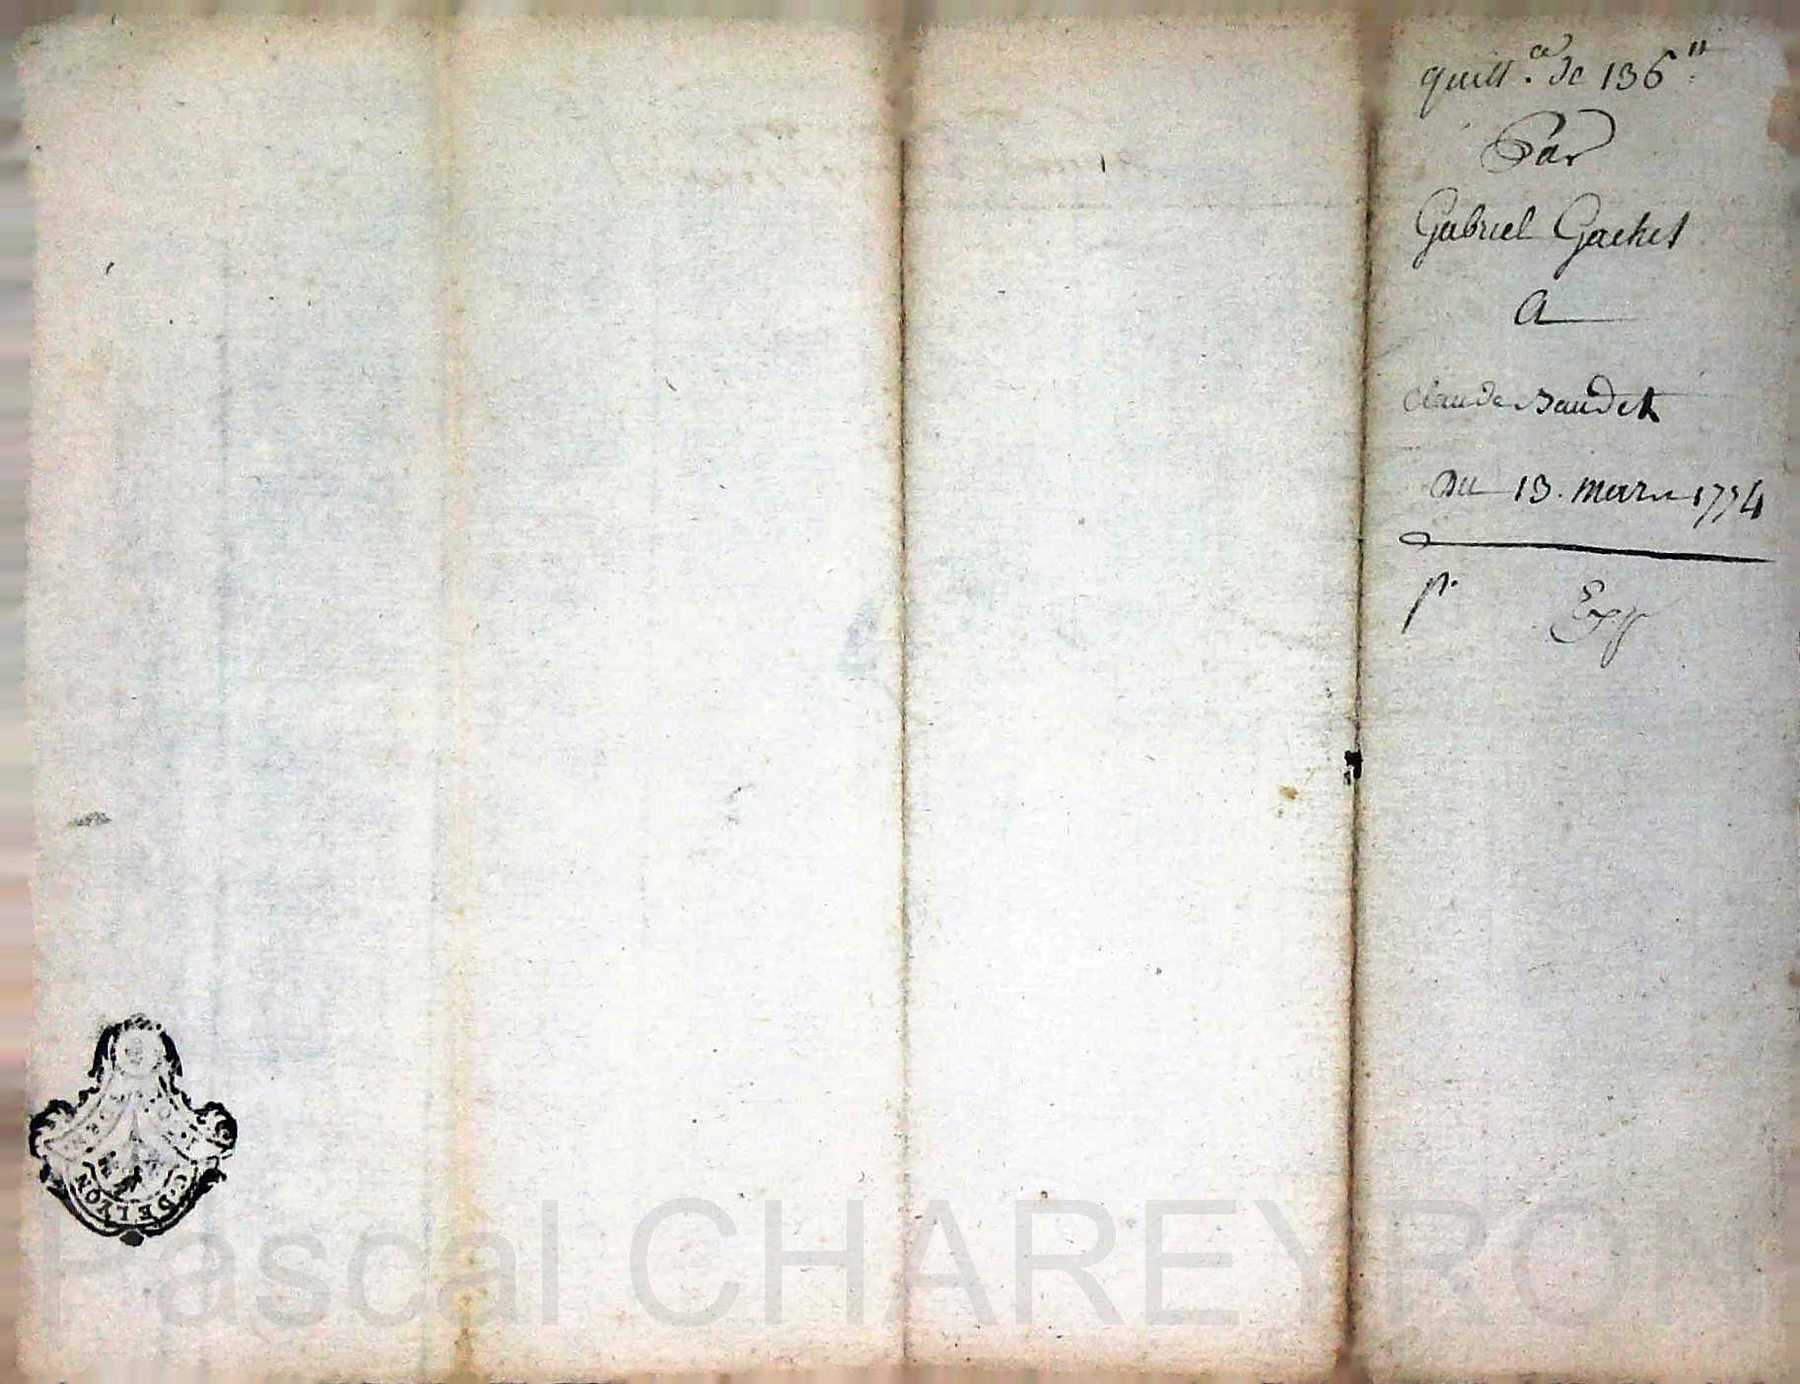 quitt.ce de 136 ₶
Par
Gabriel Gachet
A
Claude Baudet
Du 13. mars 1774
pr. Exp
DE LYON
Pascal CHAREYRON